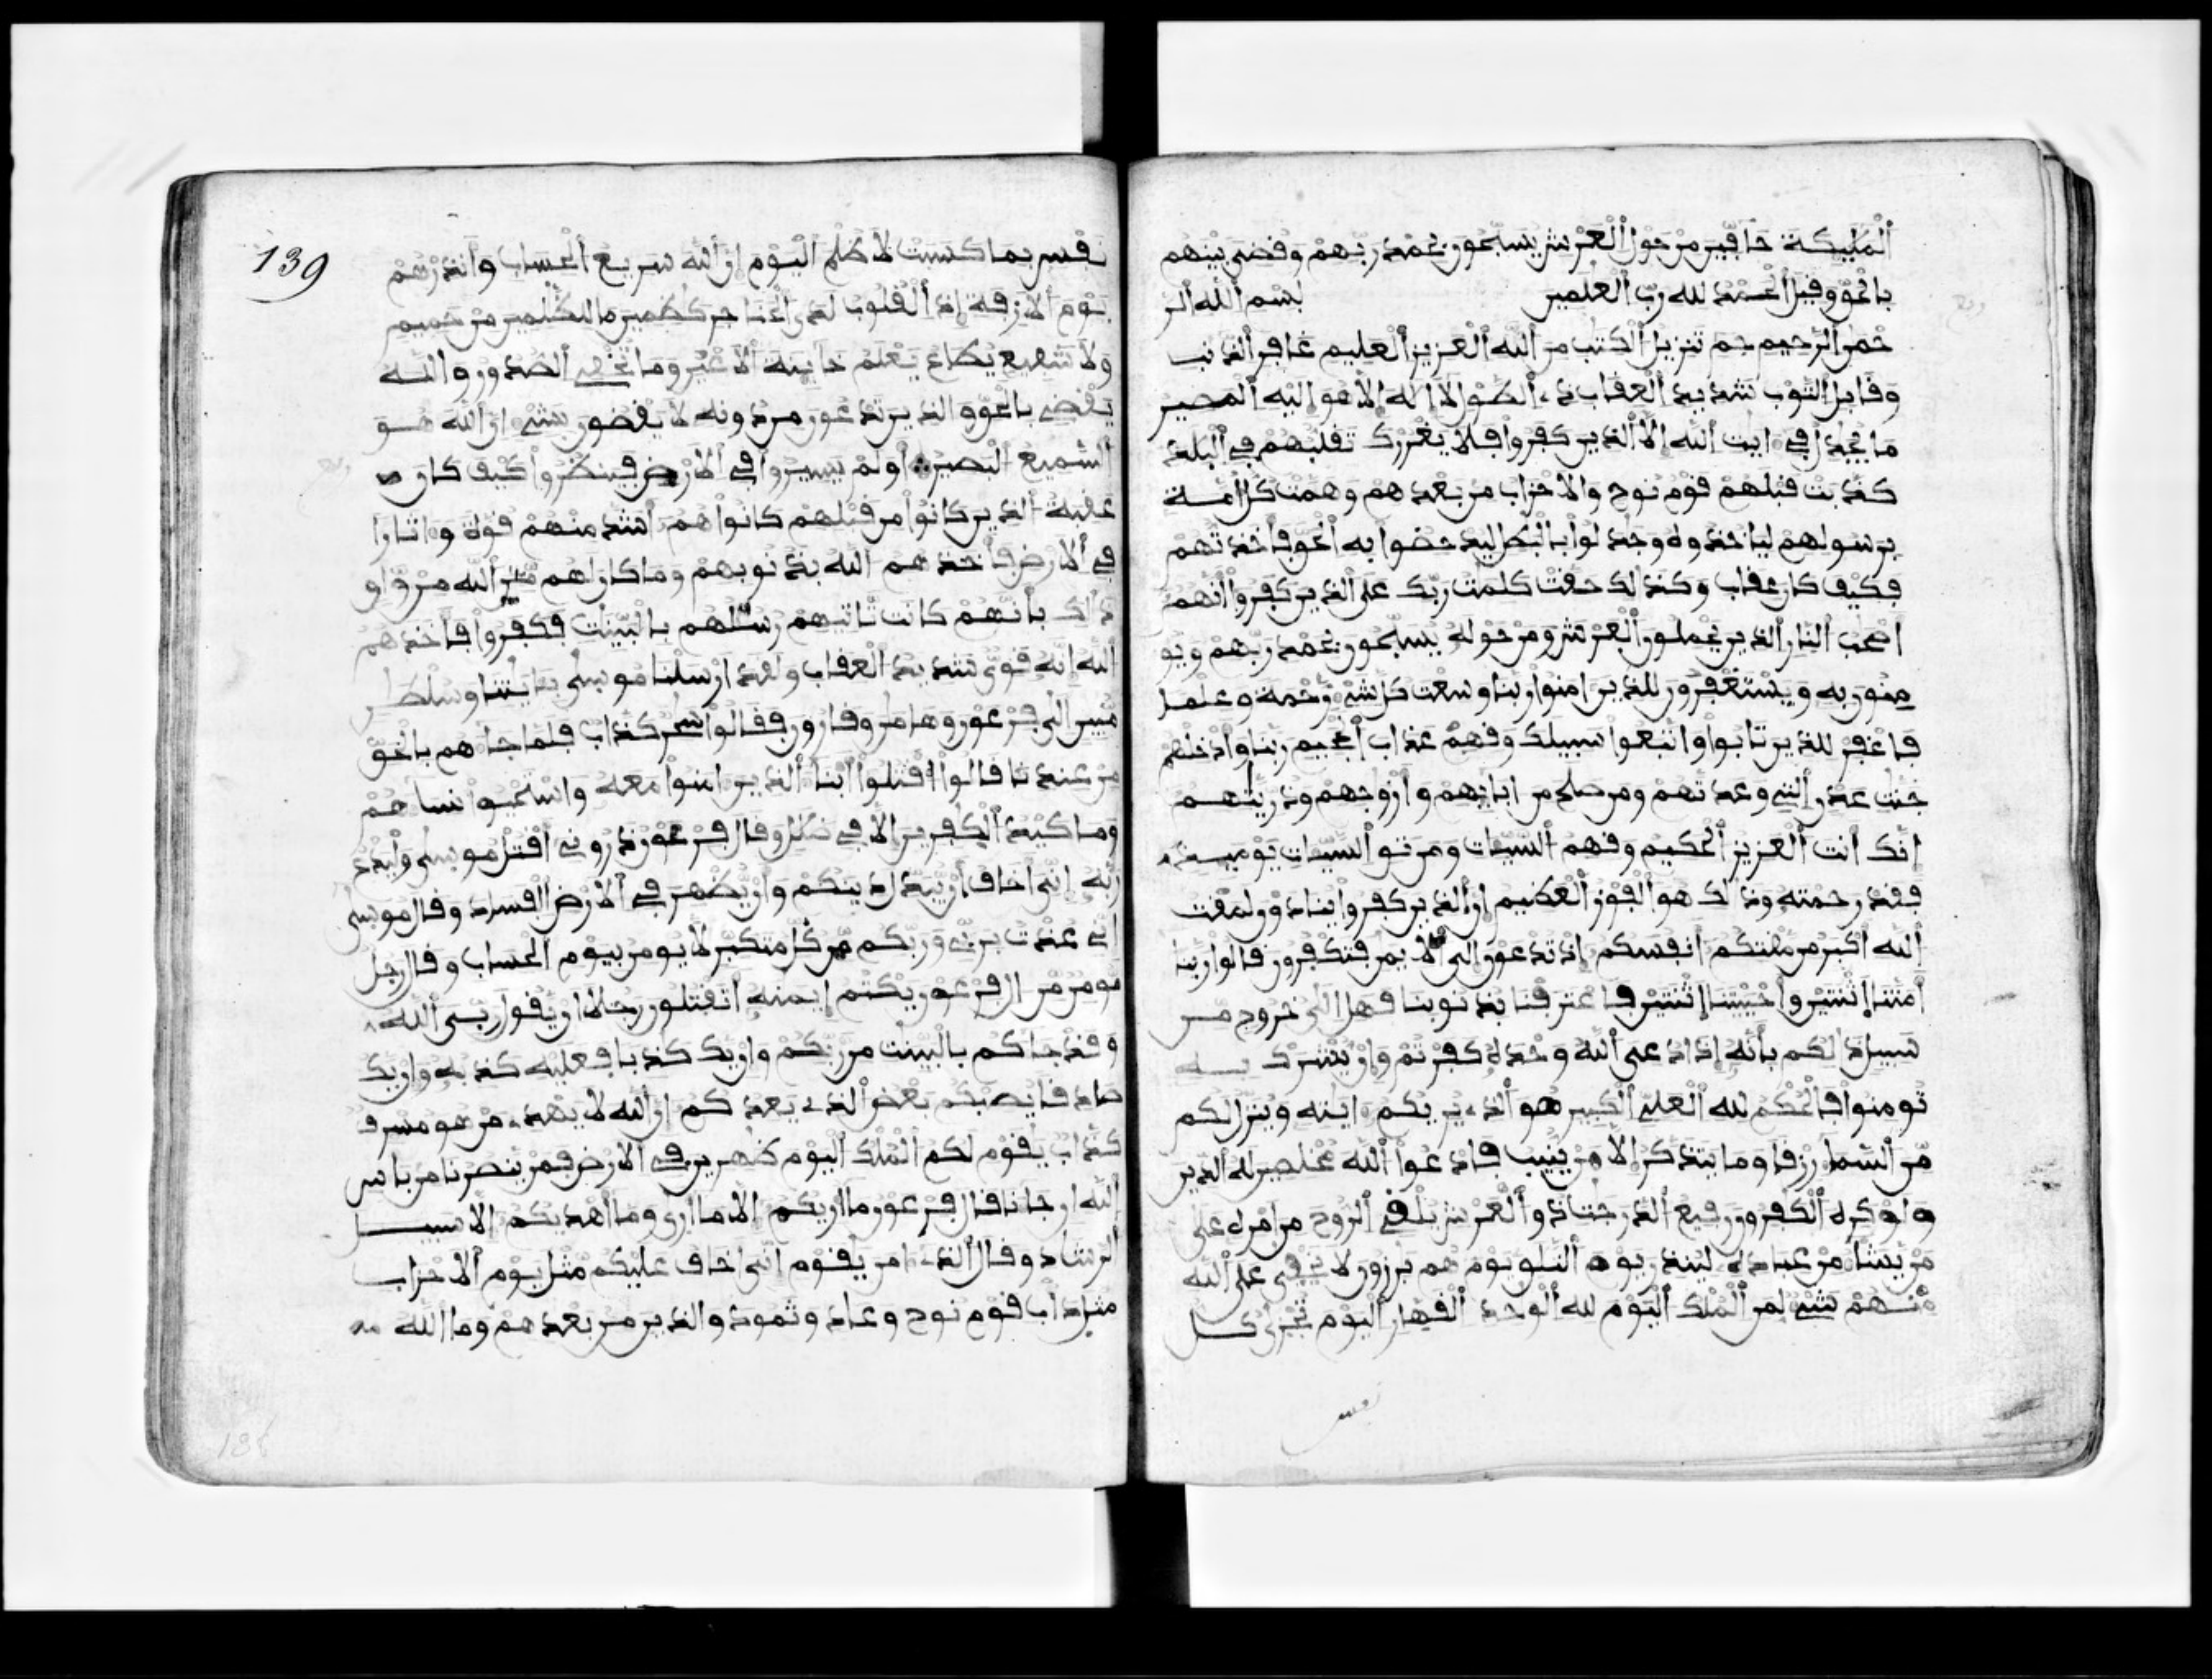 الملبكة حافين من حول العرش يسبحون بحمد ربهم وقضى بينهم
بالحق وقيل الحمد لله رب العلمين بسم الله الر
حمن الرحيم حم تنزيل الكتب من الله العزيز العليم غافر الذنب
وقابل التوب شديد العقاب ذى الطول لا اله الا هو اليه المصير
ما يجدل في ايت الله الا الذين كفروا فلا يغررك تقلبهم في البلد
كذبت قبلهم قوم نوح والاحزاب من بعدهم وهمت كل امة
برسولهم لياخذوه وجدلوا بالبطل ليدحضوا به الحق فاخذتهم
فكيف كان عقاب وكذلك حقت كلمت ربك على الذين كفروا انهم
اصحب النار الذين يحملون العرش ومن حوله يسبحون بحمد ربهم ويو
منون به ويستغفرون للذين امنوا ربنا وسعت كل شيء رحمة وعلما
فاغفر للذين تابوا واتبعوا سبيلك وقهم عذاب الجحيم ربنا وادخلهم
جنت عدن التي وعدتهم ومن صلح من ابايهم وازوجهم وذريتهم
انك انت العزيز الحكيم وقهم السيات ومن تق السيات يوميذ
فقد رحمته وذلك هو الفوز العظيم ان الذين كفروا ينادون لمقت
الله اكبر من مقتكم انفسكم اذ تدعون الى الايمن فتكفرون قالوا ربنا
امتنا اثنتين واحييتنا اثنتين فاعترفنا بذنوبنا فهل الى خروج من
سبيل ذلكم بانه اذا دعى الله وحده كفرتم وان يشرك به
تومنوا فالحكم لله العلي الكبير هو الذى يريكم ايته وينزل لكم
من السما رزقا وما يتذكر الا من ينيب فادعوا الله مخلصين له الدين
ولو كره الكفرون رفيع الدرجت ذو العرش يلقي الروح من امره على
من يشا من عباده لينذر يوم التلق يوم هم برزون لا يخفى على الله
منهم شيء لمن الملك اليوم لله الوحد القهار اليوم تجزى كل
نفس
139
نفس بما كسبت لا ظلم اليوم ان الله سريع الحساب وانذرهم
يوم الازفة اذ القلوب لدى الحناجر كظمين ما للظلمين من حميم
ولا شفيع يطاع يعلم خاينة الاعين وما تخفي الصدور والله
يقضي بالحق والذين تدعون من دونه لا يقضون بشيء ان الله هو
السميع البصير اولم يسيروا في الارض فينظروا كيف كان
عقبة الذين كانوا من قبلهم كانوا هم اشد منهم قوة واثارا
في الارض فاخذهم الله بذنوبهم وما كان لهم من الله من واق
ذلك بانهم كانت تاتيهم رسلهم بالبينت فكفروا فاخذهم
الله انه قوي شديد العقاب ولقد ارسلنا موسى بايتنا وسلطن
مبين الى فرعون وهامن وقارون فقالوا سحر كذاب فلما جاهم بالحق
من عندنا قالوا اقتلوا ابنا الذين امنوا معه واستحيوا نساهم
وما كيد الكفرين الا في ضلل وقال فرعون ذروني اقتل موسى وليدع
ربه اني اخاف ان يبدل دينكم وان يظهر في الارض الفساد وقال موسى
اني عذت بربي وربكم من كل متكبر لا يومن بيوم الحساب وقال رجل
مومن من ال فرعون يكتم ايمنه اتقتلون رجلا ان يقول ربي الله
وقد جاكم بالبينت من ربكم وان يك كذبا فعليه كذبه وان يك
صادقا يصبكم بعض الذي يعدكم ان الله لا يهدى من هو مسرف
كذاب يقوم لكم الملك اليوم ظهرين في الارض فمن ينصرنا من باس
الله ان جانا قال فرعون ما اريكم الا ما ارى وما اهديكم الا سبيل
الرشاد وقال الذى امن يقوم اني اخاف عليكم مثل يوم الاحزاب
مثل داب قوم نوح وعاد وثمود والذين من بعدهم وما الله